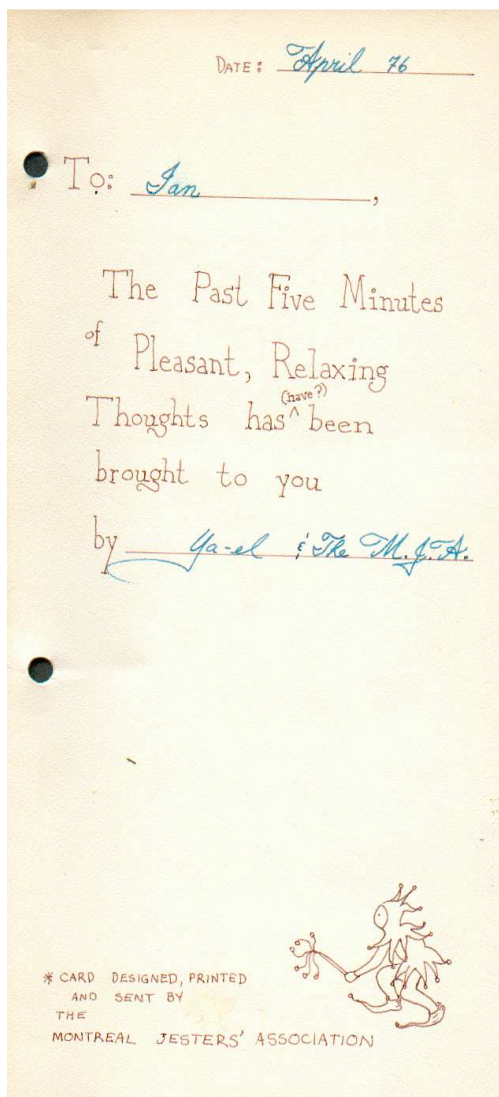 DATE: April 76
To: Ian,
The Past Five Minutes
of Pleasant, Relaxing
(have?)
Thoughts has ^ been
brought to you
by Ya-el & The M.J.A.
* CARD DESIGNED, PRINTED
AND SENT BY
THE
MONTREAL JESTERS' ASSOCIATION